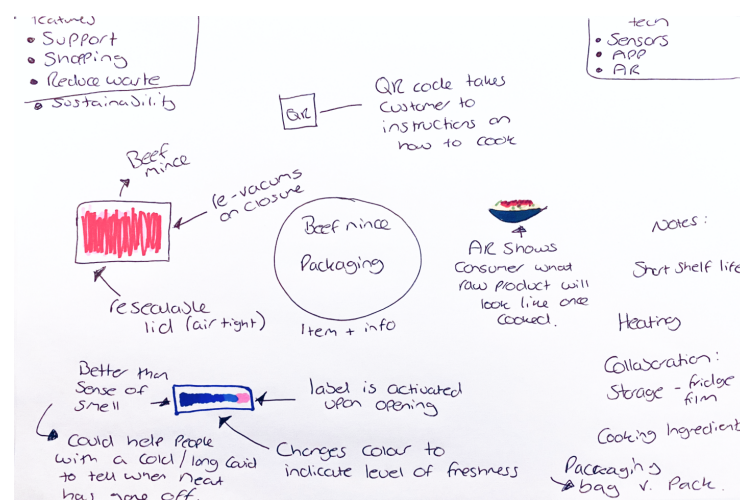 Features
• Support
• Shopping
• Reduce waste
• Sustainability
tech
• Sensors
• APP
• AR
QR
QR code takes
customer to
instructions on
how to cook
Beef
mince
re-vacums
on closure
resealable
lid (air tight)
Beef mince
Packaging
Item + info
AR shows
Consumer what
raw product will
look like once
cooked.
Notes:
Short shelf life
Heating
Collabcration:
Storage - fridge
film
Cooking Ingredient
Packaging
bag v. Pack.
Better than
Sense of
smell
label is activated
upon opening
Changes colour to
indicate level of freshness
Could help people
with a cold/long Covid
to tell when meat
has gone off.